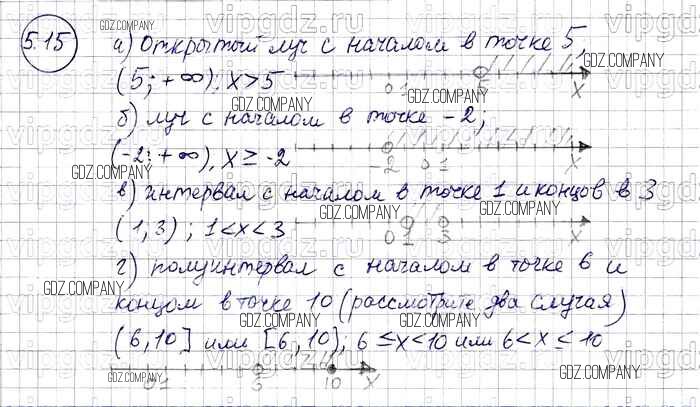 5.15
а) Открытый луч с началом в точке 5,
(5; +∞), x>5
0 1 5 x
б) луч с началом в точке -2;
(-2; +∞), x ≥ -2
-2 0 1 x
в) интервал с началом в точке 1 и концов в 3
(1, 3) ; 1<x<3
0 1 3 x
г) полуинтервал с началом в точке 6 и
концом в точке 10 (рассмотрите два случая)
(6,10] или [6,10); 6 ≤x<10 или 6<x≤10
0 1 6 10 x
GDZ.COMPANY
vipgdz.ru